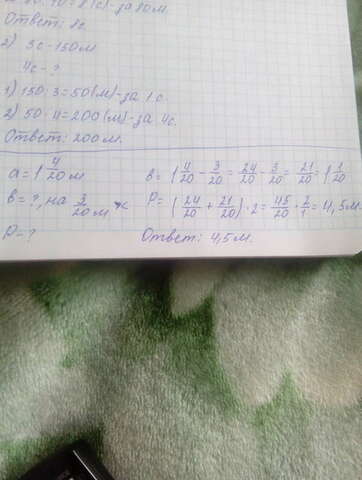 Ответ: 2с.
2) 3с - 150м
4с - ?
1) 150 : 3 = 50 (м) - за 1 с.
2) 50 · 4 = 200 (м) - за 4с.
Ответ: 200 м.
a = 1 4/20 м
в = 1 4/20 - 3/20 = 24/20 - 3/20 = 21/20 = 1 1/20
в = ?, на 3/20 м <
P = (24/20 + 21/20) · 2 = 45/20 · 2/1 = 4,5 м.
P = ?
Ответ: 4,5 м.